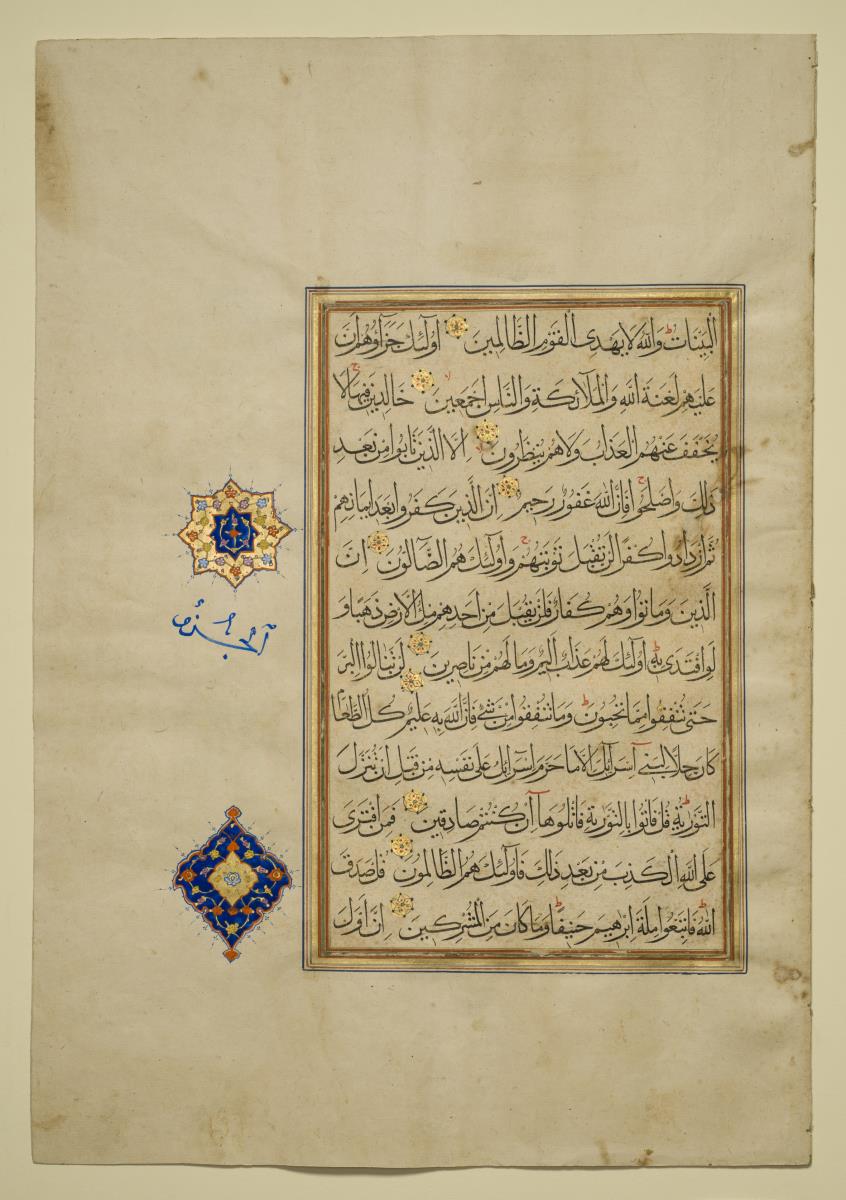 البَيِّنَاتُ وَاللهُ لَا يَهْدِى القَوْمَ الظَّالِمِينَ اُولَئِكَ جَزَآؤُهُمْ اَنَّ
عَلَيْهِمْ لَعْنَةَ اللهِ وَالْمَلَآئِكَةِ وَالنَّاسِ اَجْمَعِينَ خَالِدِينَ فِيهَا لَا
يُخَفَّفُ عَنْهُمُ العَذَابُ وَلَا هُمْ يُنْظَرُونَ اِلَّا الَّذِينَ تَابُوا مِنْ بَعْدِ
ذَلِكَ وَاَصْلَحُوا فَاِنَّ اللهَ غَفُورٌ رَحِيمٌ اِنَّ الَّذِينَ كَفَرُوا بَعْدَ اِيمَانِهِمْ
ثُمَّ ازْدَادُوا كُفْرًا لَنْ تُقْبَلَ تَوْبَتُهُمْ وَاُولَئِكَ هُمُ الضَّآلُّونَ اِنَّ
الَّذِينَ وَمَاتُوا وَهُمْ كُفَّارٌ فَلَنْ يُقْبَلَ مِنْ اَحَدِهِمْ مِلْءُ الْاَرْضِ ذَهَبًا وَ
لَوِ افْتَدَى بِهِ اُولَئِكَ لَهُمْ عَذَابٌ اَلِيمٌ وَمَا لَهُمْ مِنْ نَاصِرِينَ لَنْ تَنَالُوا الْبِرَّ
حَتَّى تُنْفِقُوا مِمَّا تُحِبُّونَ وَمَا تُنْفِقُوا مِنْ شَئٍ فَاِنَّ اللهَ بِهِ عَلِيمٌ كُلُّ الطَّعَامِ
كَانَ حِلًّا لِبَنِى اِسْرَآئِلَ اِلَّا مَا حَرَّمَ اِسْرَآئِلُ عَلَى نَفْسِهِ مِنْ قَبْلِ اَنْ تُنَزَّلَ
التَّوْرِيَةُ قُلْ فَاْتُوا بِالتَّوْرِيَةِ فَاتْلُوهَا اِنْ كُنْتُمْ صَادِقِينَ فَمَنِ افْتَرَى
عَلَى اللهِ الْكَذِبَ مِنْ بَعْدِ ذَلِكَ فَاُولَئِكَ هُمُ الظَّالِمُونَ قُلْ صَدَقَ
اللهُ فَاتَّبِعُوا مِلَّةَ اِبْرَهِيمَ حَنِيفًا وَمَا كَانَ مِنَ الْمُشْرِكِينَ اِنَّ اَوَّلَ
الجُزْءُ